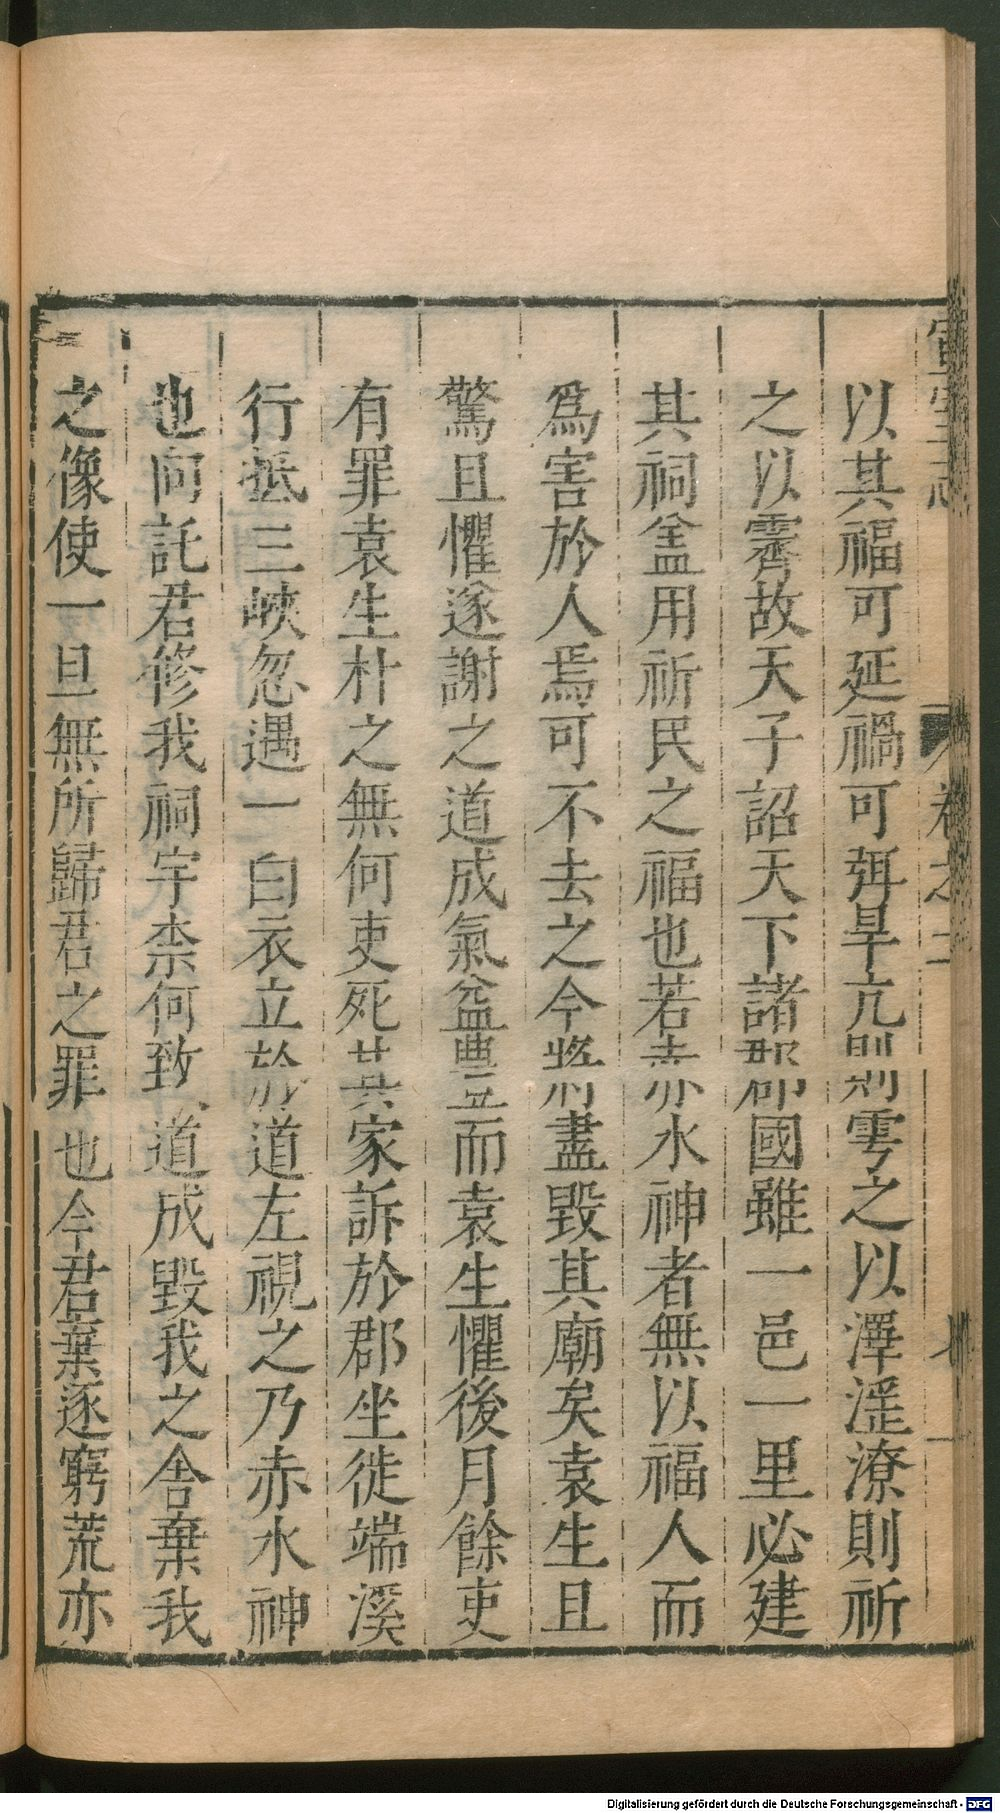 以其福可延禍可弭旱亢則雩之以澤淫潦則祈
之以霽故天子詔天下諸郡國雖一邑一里必建
其祠盖用祈民之福也若赤水神者無以福人而
爲害於人焉可不去之今將盡毀其廟矣袁生且
驚且懼遂謝之道成氣益豐而袁生懼後月餘吏
有罪袁生朴之無何吏死其家訴於郡坐徙端溪
行抵三峽忽遇一白衣立於道左視之乃赤水神
也向託君修我祠宇柰何致道成毀我之舍棄我
之像使一旦無所歸君之罪也今君棄逐窮荒亦
宣室志
卷之二
Digitalisierung gefördert durch die Deutsche Forschungsgemeinschaft - DFG